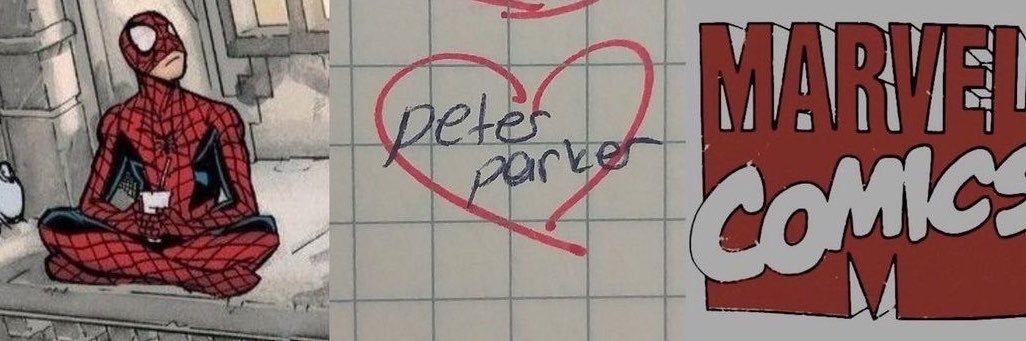 peter
parker
MARVEL
COMICS